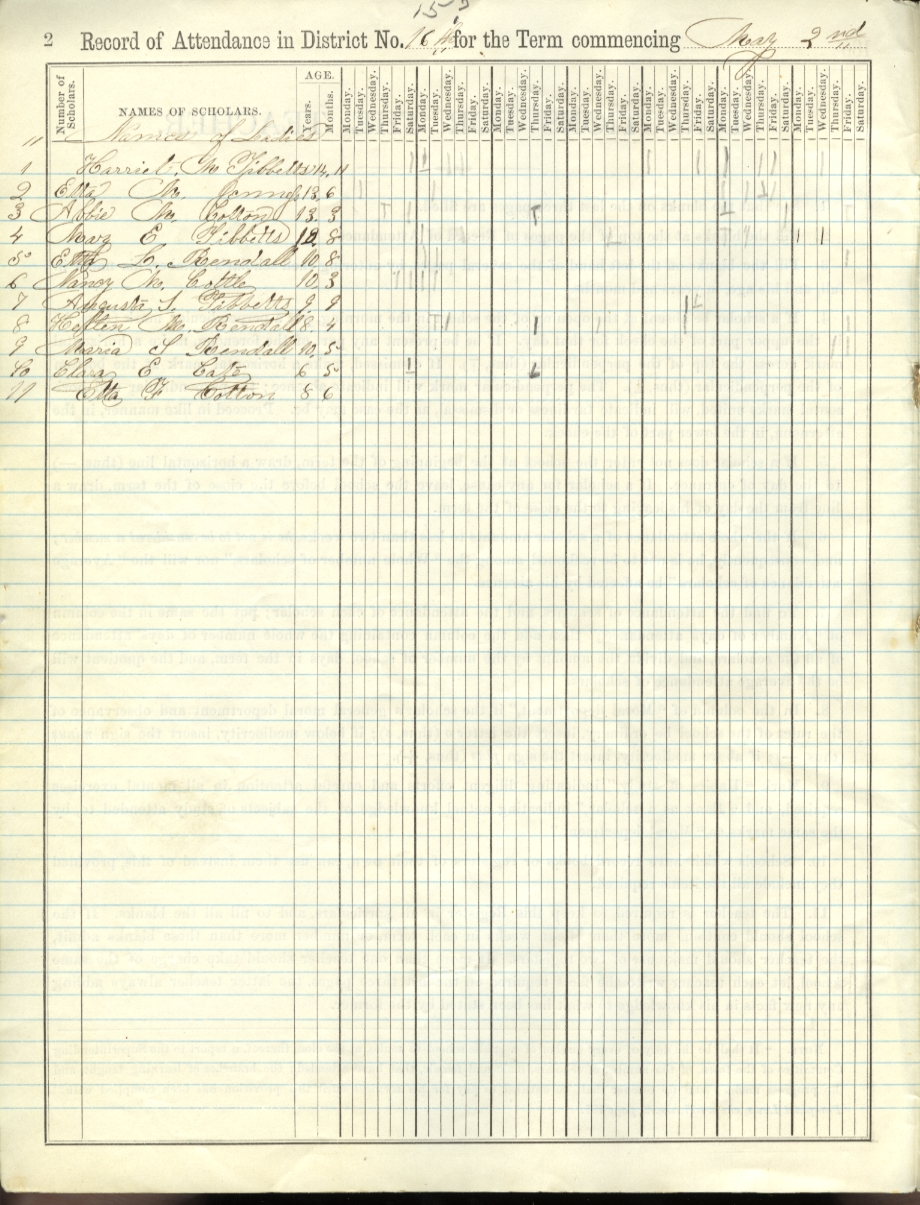 15
2 Record of Attendance in District No. 16 for the Term commencing May 2nd
Number of Scholars. NAMES OF SCHOLARS. AGE. Years. Months. Monday. Tuesday. Wednesday. Thursday. Friday. Saturday. Monday. Tuesday. Wednesday. Thursday. Friday. Saturday. Monday. Tuesday. Wednesday. Thursday. Friday. Saturday. Monday. Tuesday. Wednesday. Thursday. Friday. Saturday. Monday. Tuesday. Wednesday. Thursday. Friday. Saturday. Monday. Tuesday. Wednesday. Thursday. Friday. Saturday. Monday. Tuesday. Wednesday. Thursday. Friday. Saturday.
" Names of Ladies
1 Harriet. M Tibbetts 14, 11
2 Etta M. 13, 6
3 Abbie M. Cotton 13. 3
4 Mary E Tibbetts 12. 8
5 Etta L. Rendall 10. 8
6 Nancy M. Cottle 10. 3
7 Augusta S. Tibbetts 9. 9
8 Hellen M. Rendall 8. 4
9 Maria S Rendall 10. 5
10 Clara E Cate 6 5
11 Etta F Cotton 8 6